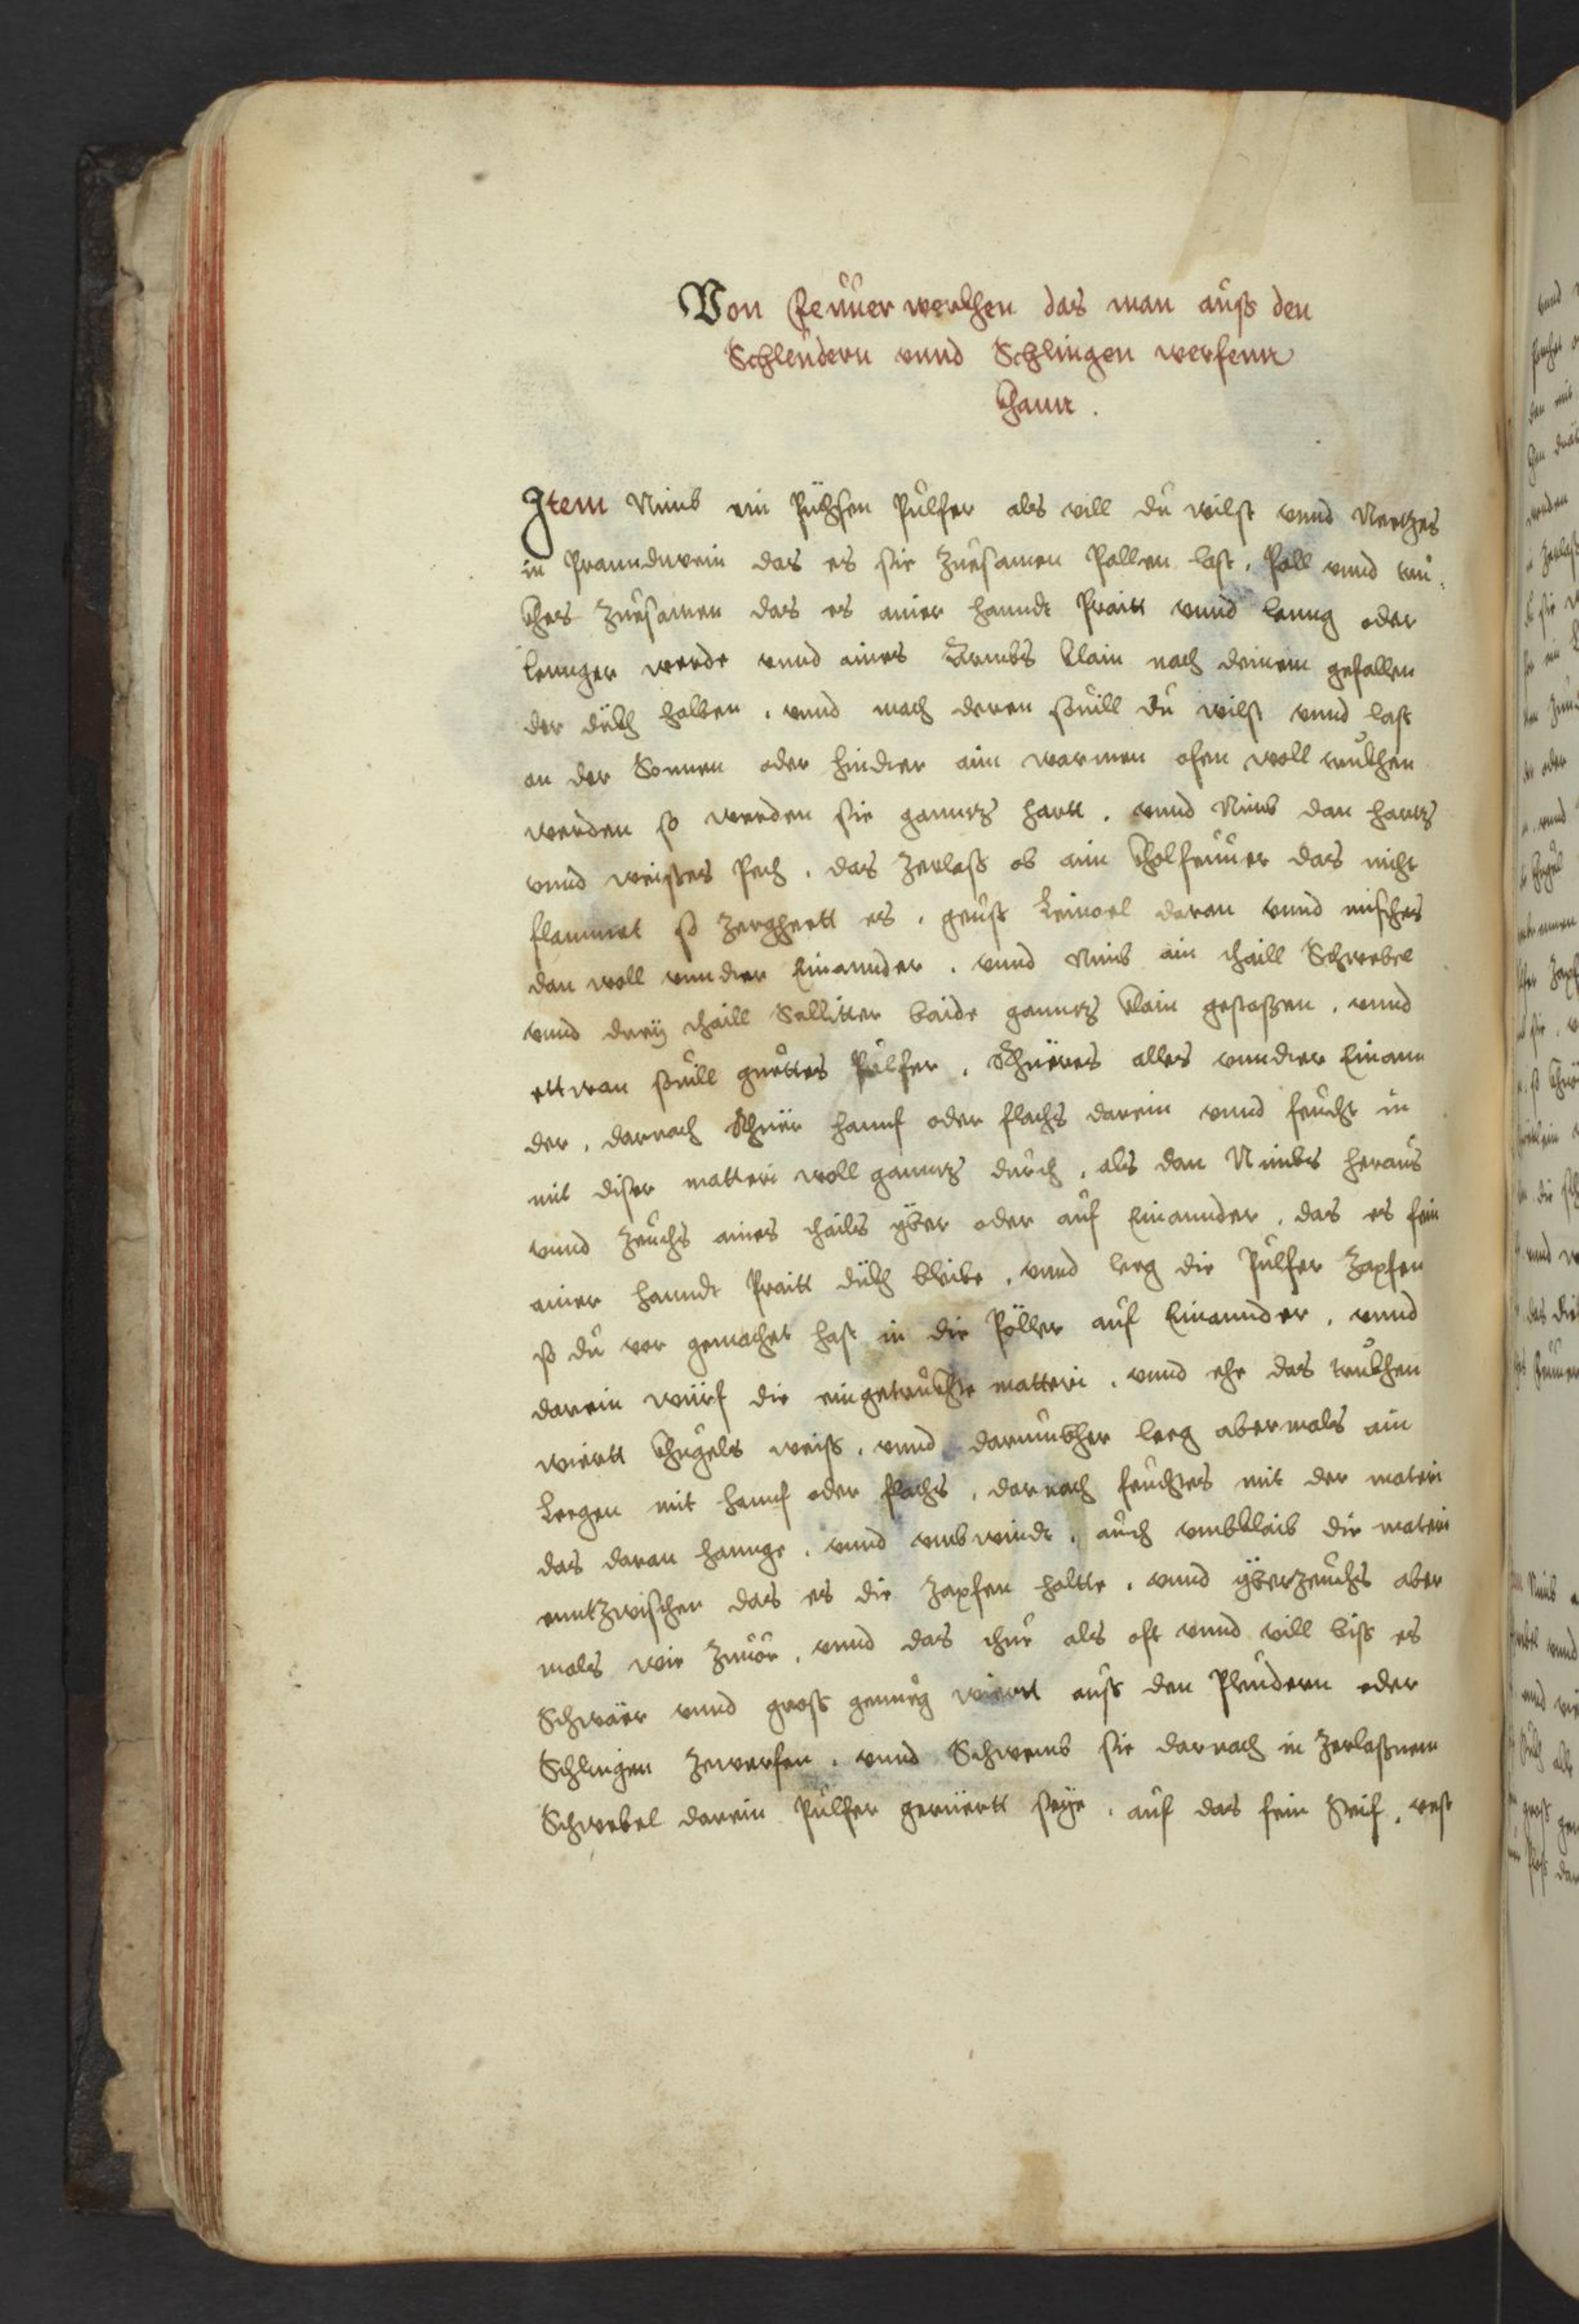 Von Feüüer werkhen das man auß den
Schleüdern vnnd Schlingen werfenn
khann.
Item Nimb ein Püchsen Pulfer als vill du wilst vnnd Netzes
in Pranndwein das es sie zuesamen Pallen last, Pall vnnd tru=
khes zuesamen das es ainer hanndt Praitt vnnd lanng oder
lennger werde vnnd aines Armbs klain nach deinem gefallen
der dükh halben, vnnd mach deren souill du wilst vnnd lass
an der Sonnen oder hinder aim warmen ofen woll trukhen
werden so werden sie ganntz hartt, vnnd Nimb dan hartz
vnnd weisses Pech, das zerlass ob aim kholfeüüer das nicht
flammet so zergheett es, geust Leinoel daran vnnd misches
dan woll vnnder Einannder, vnnd Nimb ain thaill Schwebel
vnnd dreÿ thaill Sallitter baide ganntz klain gestossen, vnnd
ettwan souill guettes Pulfer, Rhüeres alles vnnder Einann
der, darnach Rhüer hanf oder flachs darein vnnd feücht in
mit diser matteri woll ganntz durch, als dan Nimbs heraus
vnnd zeüchs aines thails yber oder auf Einannder, das es fein
ainer hanndt Praitt dükh bleibe, vnnd leeg die Pulfer Zapfen
so du vor gemachet hast in die Pöller auf Einannder, vnnd
darein würf die eingetrükhte matteri, vnnd ehe das trukhen
wiertt khugels weiß, vnnd darumbher leeg abermals ain
Leegen mit hanf oder flachs, darnach feüchtes mit der materi
das daran hannge, vnnd vmbwindt, auch vmbklaib die materi
enntzwischen das es die Zapfen haltte, vnnd ÿberzeüchs aber
mals wie zuuor, vnnd das thue als oft vnnd vill biß es
Schwäer vnnd gross genueg wiertt auß den Pleüdern oder
Schlingen zuwerfen, vnnd Schwemb sie darnach in zerlassnem
Schwebel darein Pulfer gerüertt seÿe, auf das fein Steif, vest